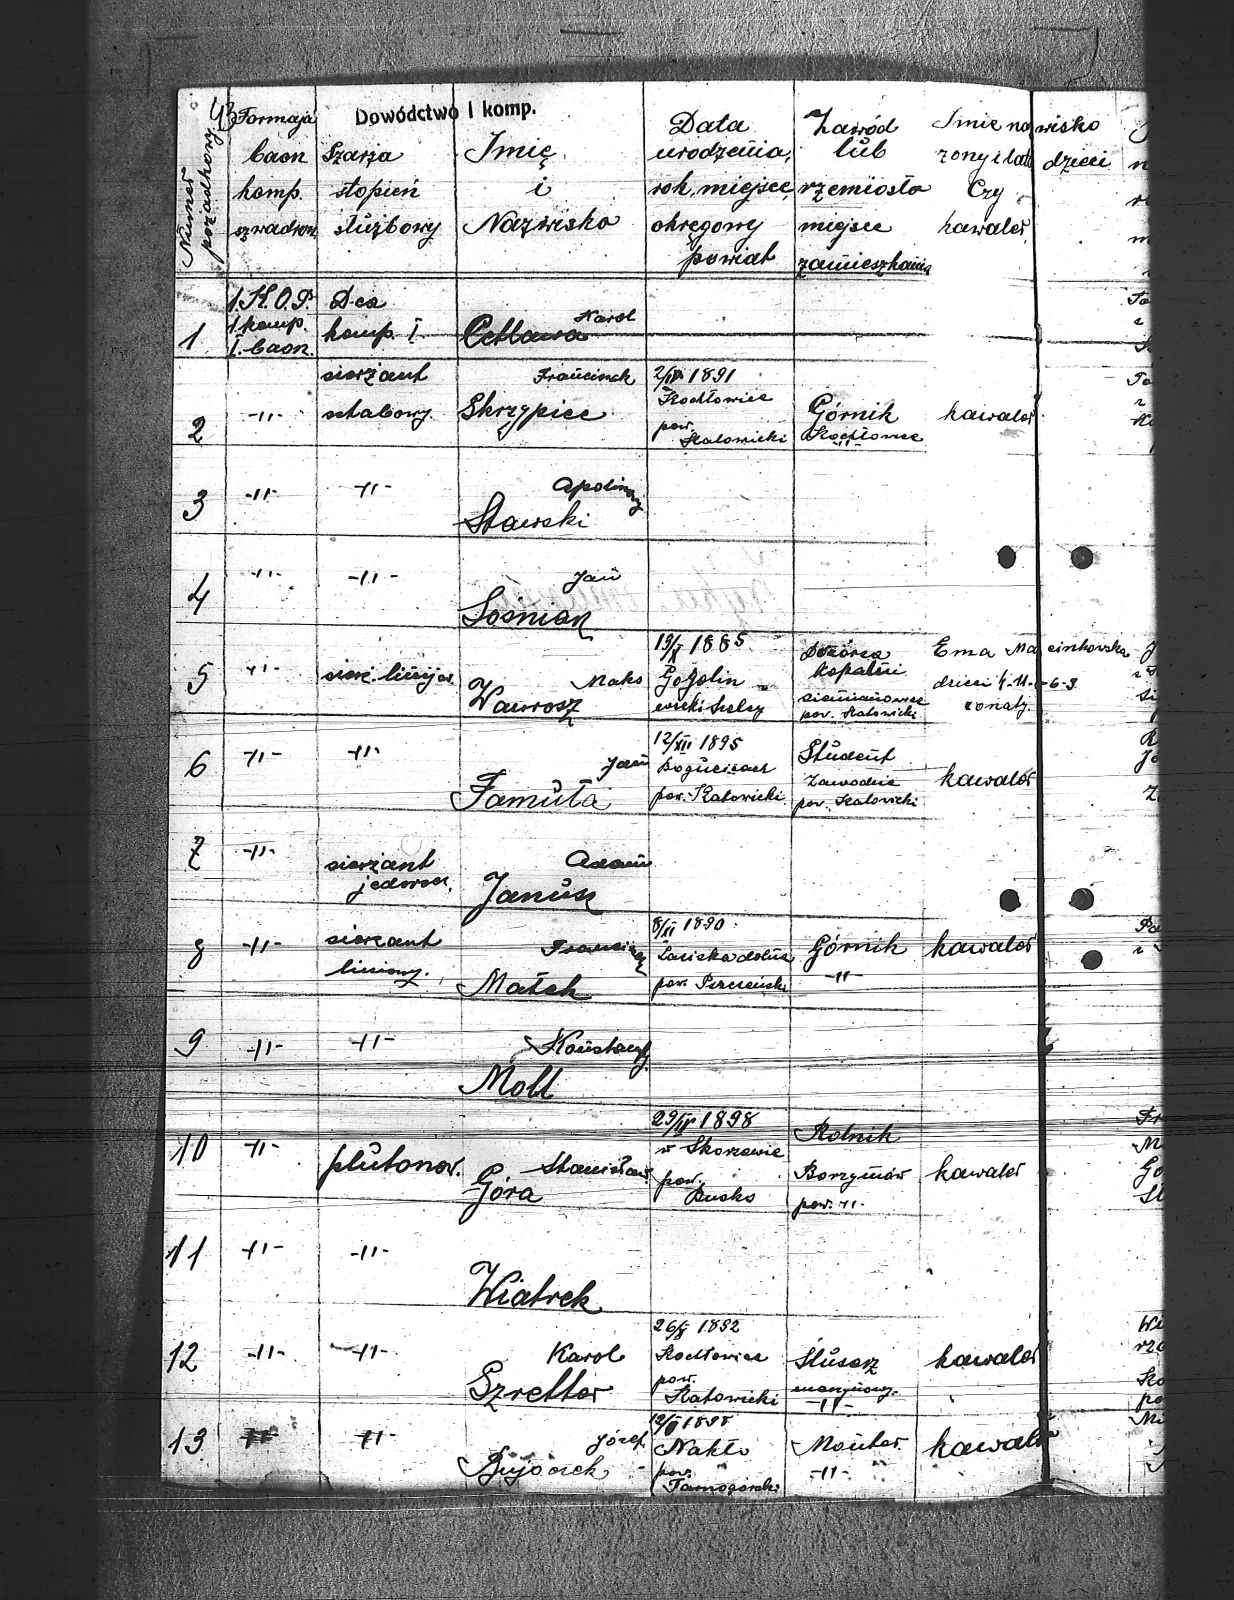 43
Dowódctwo I komp.
Numer porządkowy
Formacja
baon
komp.
szwadron
Szarża
stopień
służbowy
Imię
i
Nazwisko
Data
urodzenia,
rok, miejsce,
okręgowy
powiat
Zawód
lub
rzemiosło
miejsce
zamieszkania
Imię nazwisko
żony i lata dzieci
Czy
kawaler.
1
1.K.O.P.
1 komp.
I. baon.
D-ca
komp. I
Karol
Cetlawa
2
-11-
sierżant
sztabowy.
Franciszek
Skrzypiec
2/IX 1891
Kochłowice
pow.
Katowicki
Górnik
Kochłowice
-11-
kawaler
3
-11-
-11-
Apolinary
Stawski
4
-11-
-11-
Jan
Sośniak
5
-11-
sierż. linijow.
Maks
Wawrosz
19/X 1885
Gogolin
wielki Strzelcy
Dozórca
kopalni
Siemianowice
pow. Katowicki
Ema Marcinkowska
dzieci 4.11.-6-3.
żonaty.
6
-11-
-11-
Jan
Famuła
12/XII 1895
Bogucicach
pow. Katowicki.
Student
Zawodzie
pow. Katowicki
kawaler
7
-11-
sierżant
jednoroczn.
Adam
Janusz
8
-11-
sierżant
liniowy.
Franciszek
Małek
8/XI 1890
Łaziska dolne
pow. Pszczeński
Górnik
-11-
kawaler
9
-11-
-11-
Konstanty
Moll
10
-11-
plutonow.
Stanisław
Góra
29/IV 1898
w Skorzowie
pow.
Busko
Rolnik
Borzymów
pow. -11-
kawaler
11
-11-
-11-
Wiatrek
12
-11-
-11-
Karol
Szretter
26/X 1892
Kochłowice
pow.
Katowicki
Ślusarz
maszynowy.
-11-
kawaler
13
-11-
-11-
Józef
Bujoczek
Nakło
pow.
Tarnogórski
Monter.
-11-
kawaler